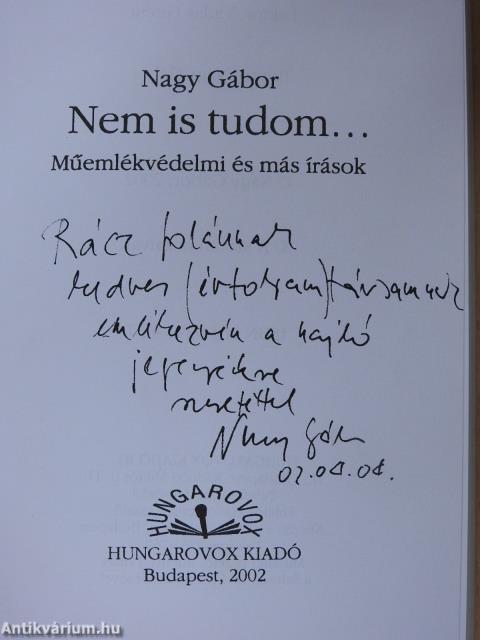 Nagy Gábor
Nem is tudom...
Műemlékvédelmi és más írások
Rácz Jolánnak
kedves (évfolyam)társamnak
emlékezvén a hajdó
jegenyékre
szeretettel
Nagy Gábor
HUNGAROVOX
HUNGAROVOX KIADÓ
Budapest, 2002
Antikvárium.hu